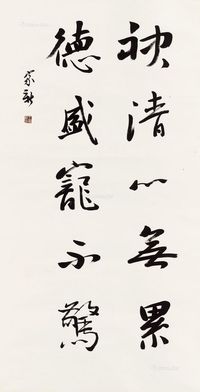 神清心無累
德盛寵不驚
家新